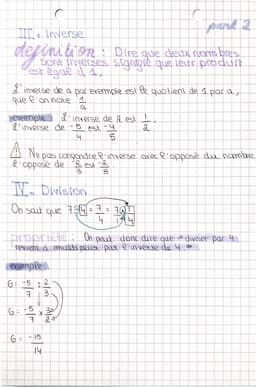 part 2
III. Inverse
definition : Dire que deux nombres
sont inverses signifie que leur produit
est égal à 1.
L'inverse de a par exemple est le quotient de 1 par a,
que l'on note 1/a
exemple L'inverse de 2 est 1/2.
L'inverse de -5/4 est -4/5
⚠ Ne pas confondre l'inverse avec l'opposé du nombre
L'opposé de 2/3 est -2/3
IV. Division
On sait que 7÷4 = 7/4 = 7×1/4
propriété : On peut donc dire que "diviser par 4
revient à multiplier par l'inverse de 4"
exemple
G = -5/7 : 2/3
G = -5/7 × 3/2
G = -15/14